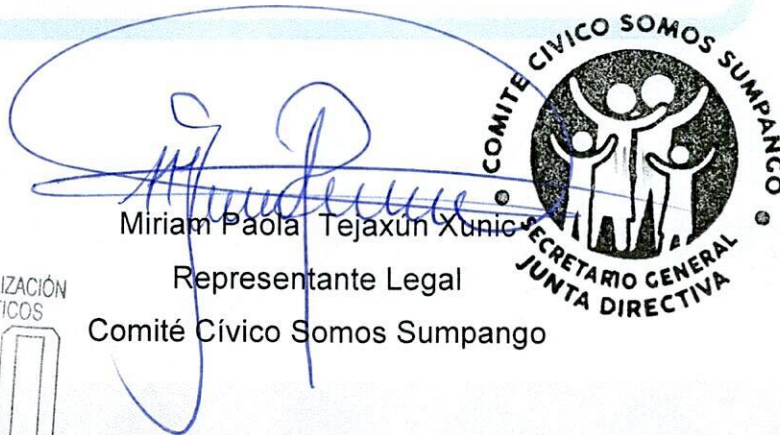 COMITE CIVICO SOMOS SUMPANGO
SECRETARIO GENERAL
JUNTA DIRECTIVA
Miriam Paola Tejaxún Xunic
Representante Legal
Comité Cívico Somos Sumpango
IZACIÓN
TICOS